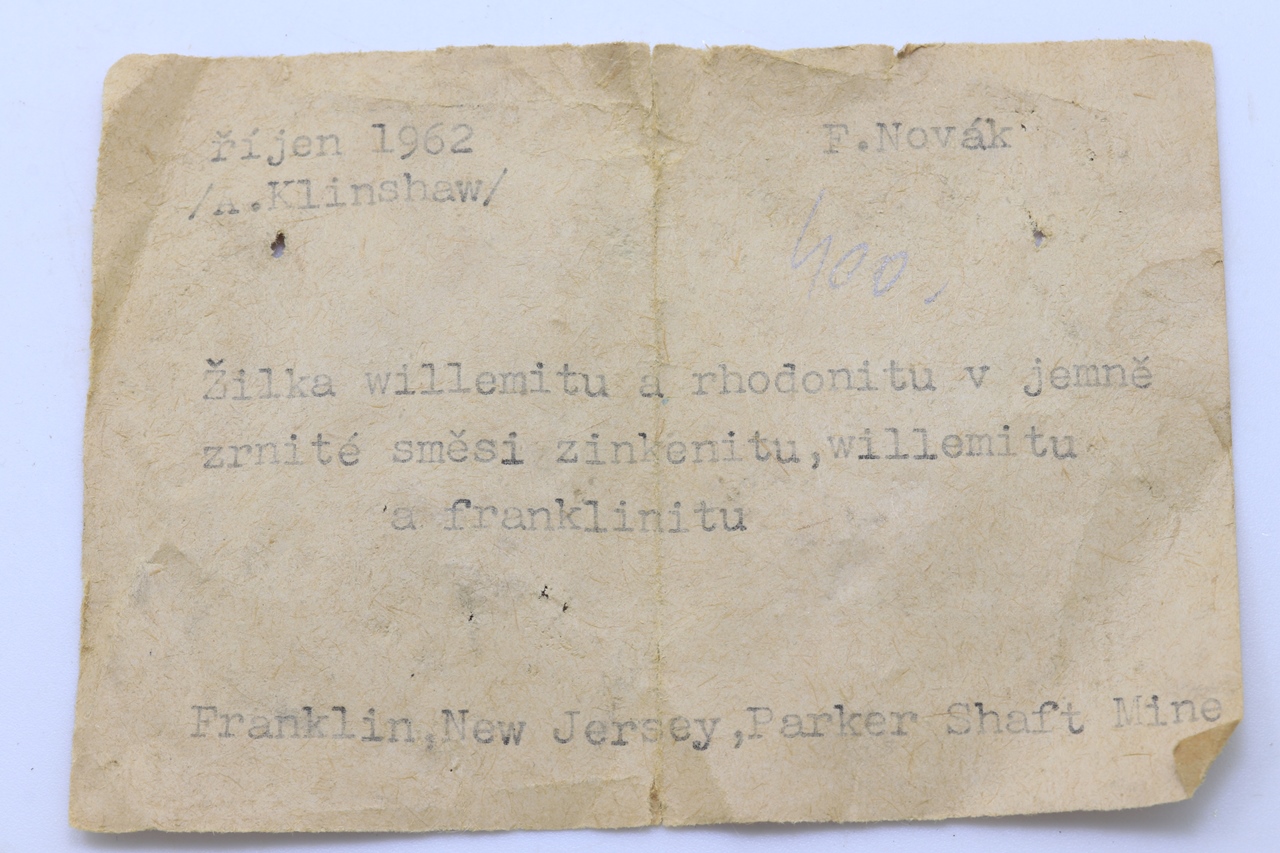 říjen 1962
F.Novák
/A.Klinshaw/
400.
Žilka willemitu a rhodonitu v jemně
zrnité směsi zinkenitu,willemitu
a franklinitu
Franklin,New Jersey,Parker Shaft Mine